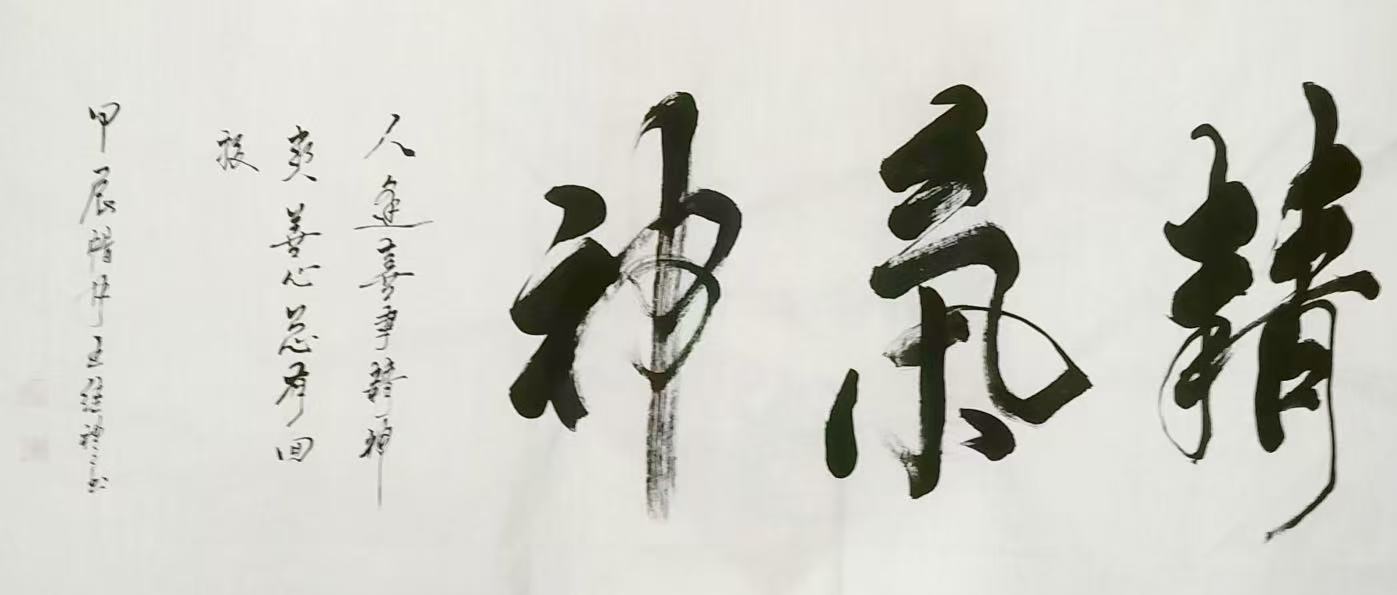 精氣神
人逢喜事精神
爽善心总有回
报
甲辰 月 王